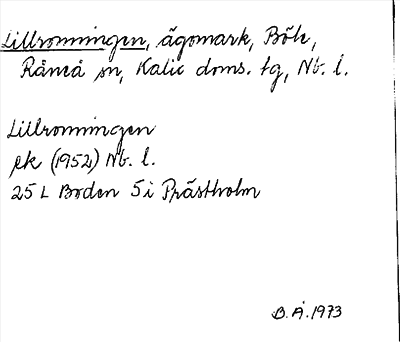 Lillronningen, ägomark, Böle,
Råneå sn, Kalix doms. tg, Nb. l.
Lillronningen
ek (1952) Nb. l.
25 L Boden 5i Prästholm
B. Å. 1973